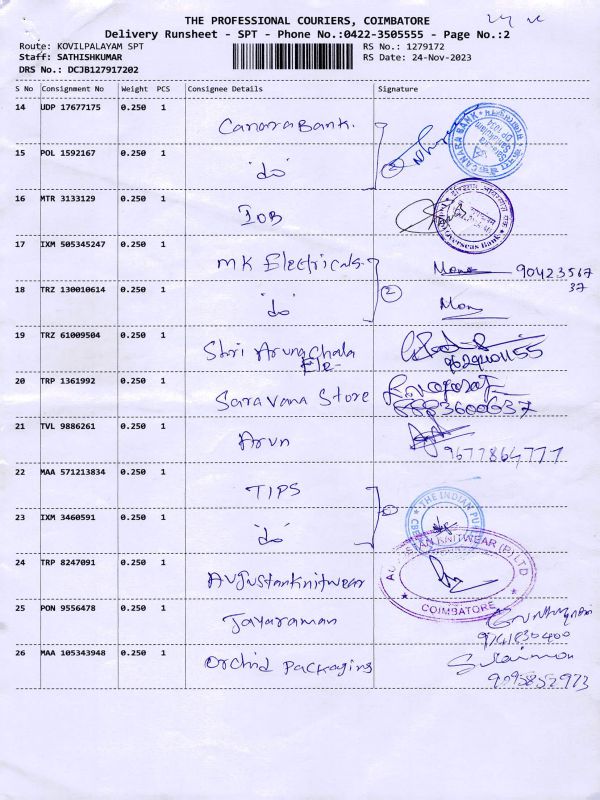 THE PROFESSIONAL COURIERS, COIMBATORE
Delivery Runsheet - SPT - Phone No.:0422-3505555 - Page No.:2
Route: KOVILPALAYAM SPT
RS No.: 1279172
Staff: SATHISHKUMAR
RS Date: 24-Nov-2023
DRS No.: DCJB127917202
S No Consignment No Weight PCS Consignee Details Signature
14 UDP 17677175 0.250 1 Canara Bank.
CANARA BANK
15 POL 1592167 0.250 1 "do" 2
16 MTR 3133129 0.250 1 IOB
Overseas Bank
17 IXM 505345247 0.250 1 MK Electricals. Mano 9042356737
18 TRZ 130010614 0.250 1 "do" 2 Mano
19 TRZ 61009504 0.250 1 Shri Arunachala Ele-
20 TRP 1361992 0.250 1 Saravana Store
21 TVL 9886261 0.250 1 Arun 9677864777
22 MAA 571213834 0.250 1 TIPS
THE INDIAN PU
23 IXM 3460591 0.250 1 do
24 TRP 8247091 0.250 1 Avjustanknitwear
KNITWEAR (P) LTD
COIMBATORE
25 PON 9556478 0.250 1 Jayaraman
26 MAA 105343948 0.250 1 Orchid Packaging
9095852973